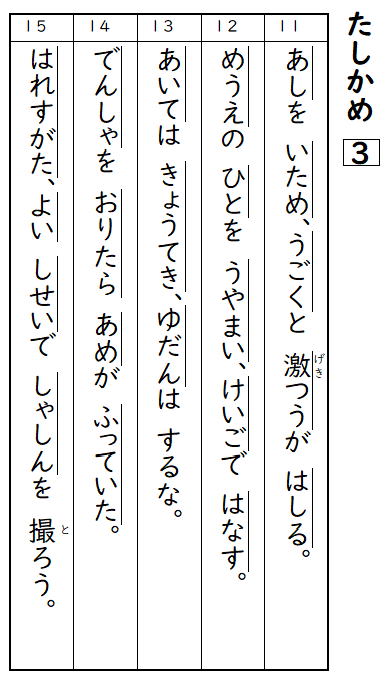 たしかめ 3
11 あしを いため、うごくと 激つうが はしる。
げき
12 めうえの ひとを うやまい、けいごで はなす。
13 あいては きょうてき、ゆだんは するな。
14 でんしゃを おりたら あめが ふっていた。
15 はれすがた、よい しせいで しゃしんを 撮ろう。
と